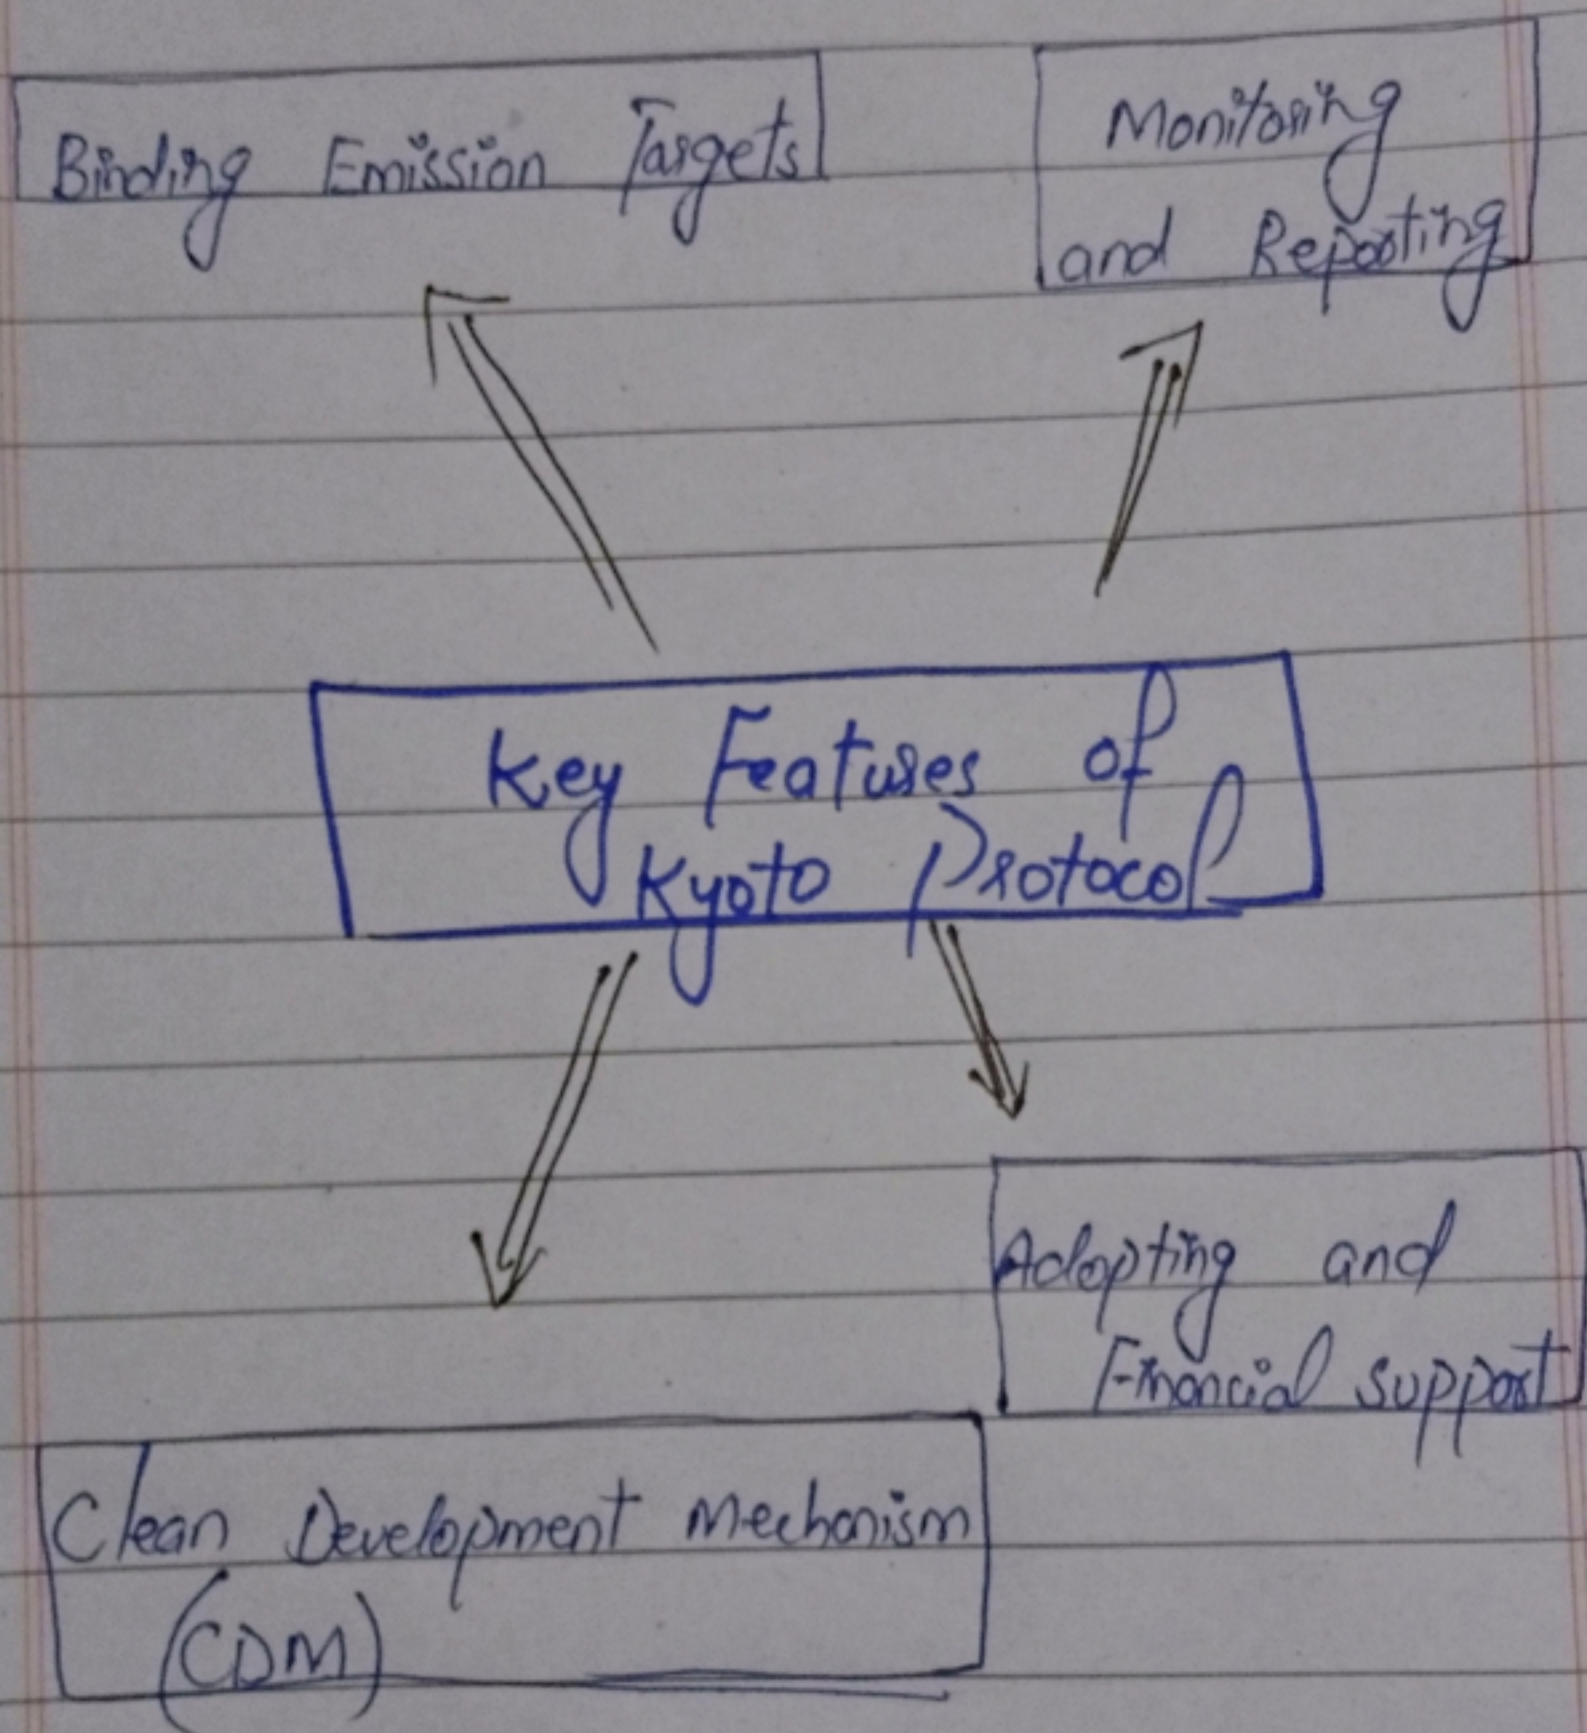 Binding Emission Targets
Monitoring
and Reporting
Key Features of
Kyoto Protocol
Adopting and
Financial support
Clean Development Mechanism
(CDM)